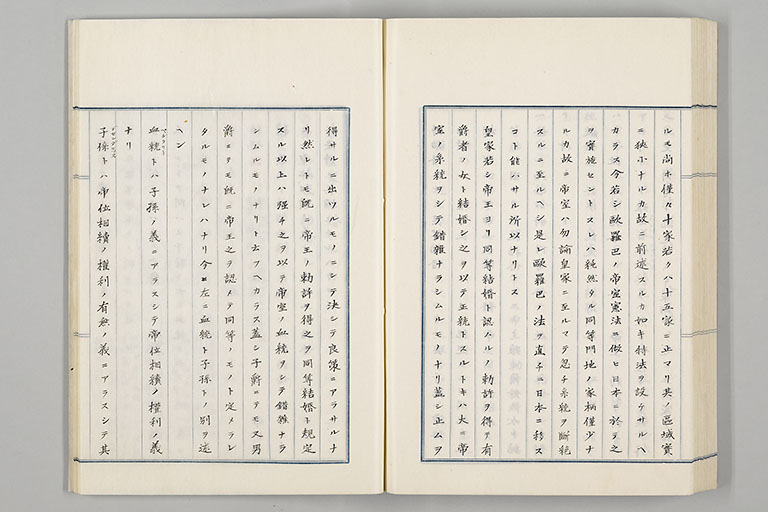 ルモ尚ホ僅々十家若クハ十五家ニ止マリ其ノ區域實
ニ狹小ナルカ故ニ前述スルカ如キ特法ヲ設ケサルヘ
カラス今若シ歐羅巴ノ帝室憲法ニ倣ヒ日本ニ於テ之
ヲ實施セントスレハ純然タル同等門地ノ家柄僅少ナ
ルカ故ニ帝室ハ勿論皇家ニ至ルマテ忽チ系統ヲ斷絶
スルニ至ルヘシ是レ歐羅巴ノ法ヲ直チニ日本ニ移ス
コト能ハサル所以ナリトス
皇家若シ帝王ヨリ同等結婚ト認ムルノ勅許ヲ得テ有
爵者ノ女ト結婚シ之ヲ以テ正統トスルトキハ大ニ帝
室ノ系統ヲシテ錯雜ナラシムルモノナリ蓋シ止ムヲ
得サルニ出ツルモノニシテ決シテ良策ニアラサルナ
リ然レトモ既ニ帝王ノ勅許ヲ得之ヲ同等結婚ト規定
スル以上ハ强チ之ヲ以テ帝室ノ血統ヲシテ錯雜ナラ
シムルモノナリト云フヘカラス蓋シ子爵ニテモ又男
爵ニテモ既ニ帝王之ヲ認メテ同等ノモノト定メラレ
タルモノナレハナリ今左ニ血統ト子孫トノ別ヲ述
ヘン
血統トハ子孫ノ義ニアラスシテ帝位相續ノ權利ノ義
ナリ
子孫トハ帝位相續ノ權利ノ有無ノ義ニアラスシテ其